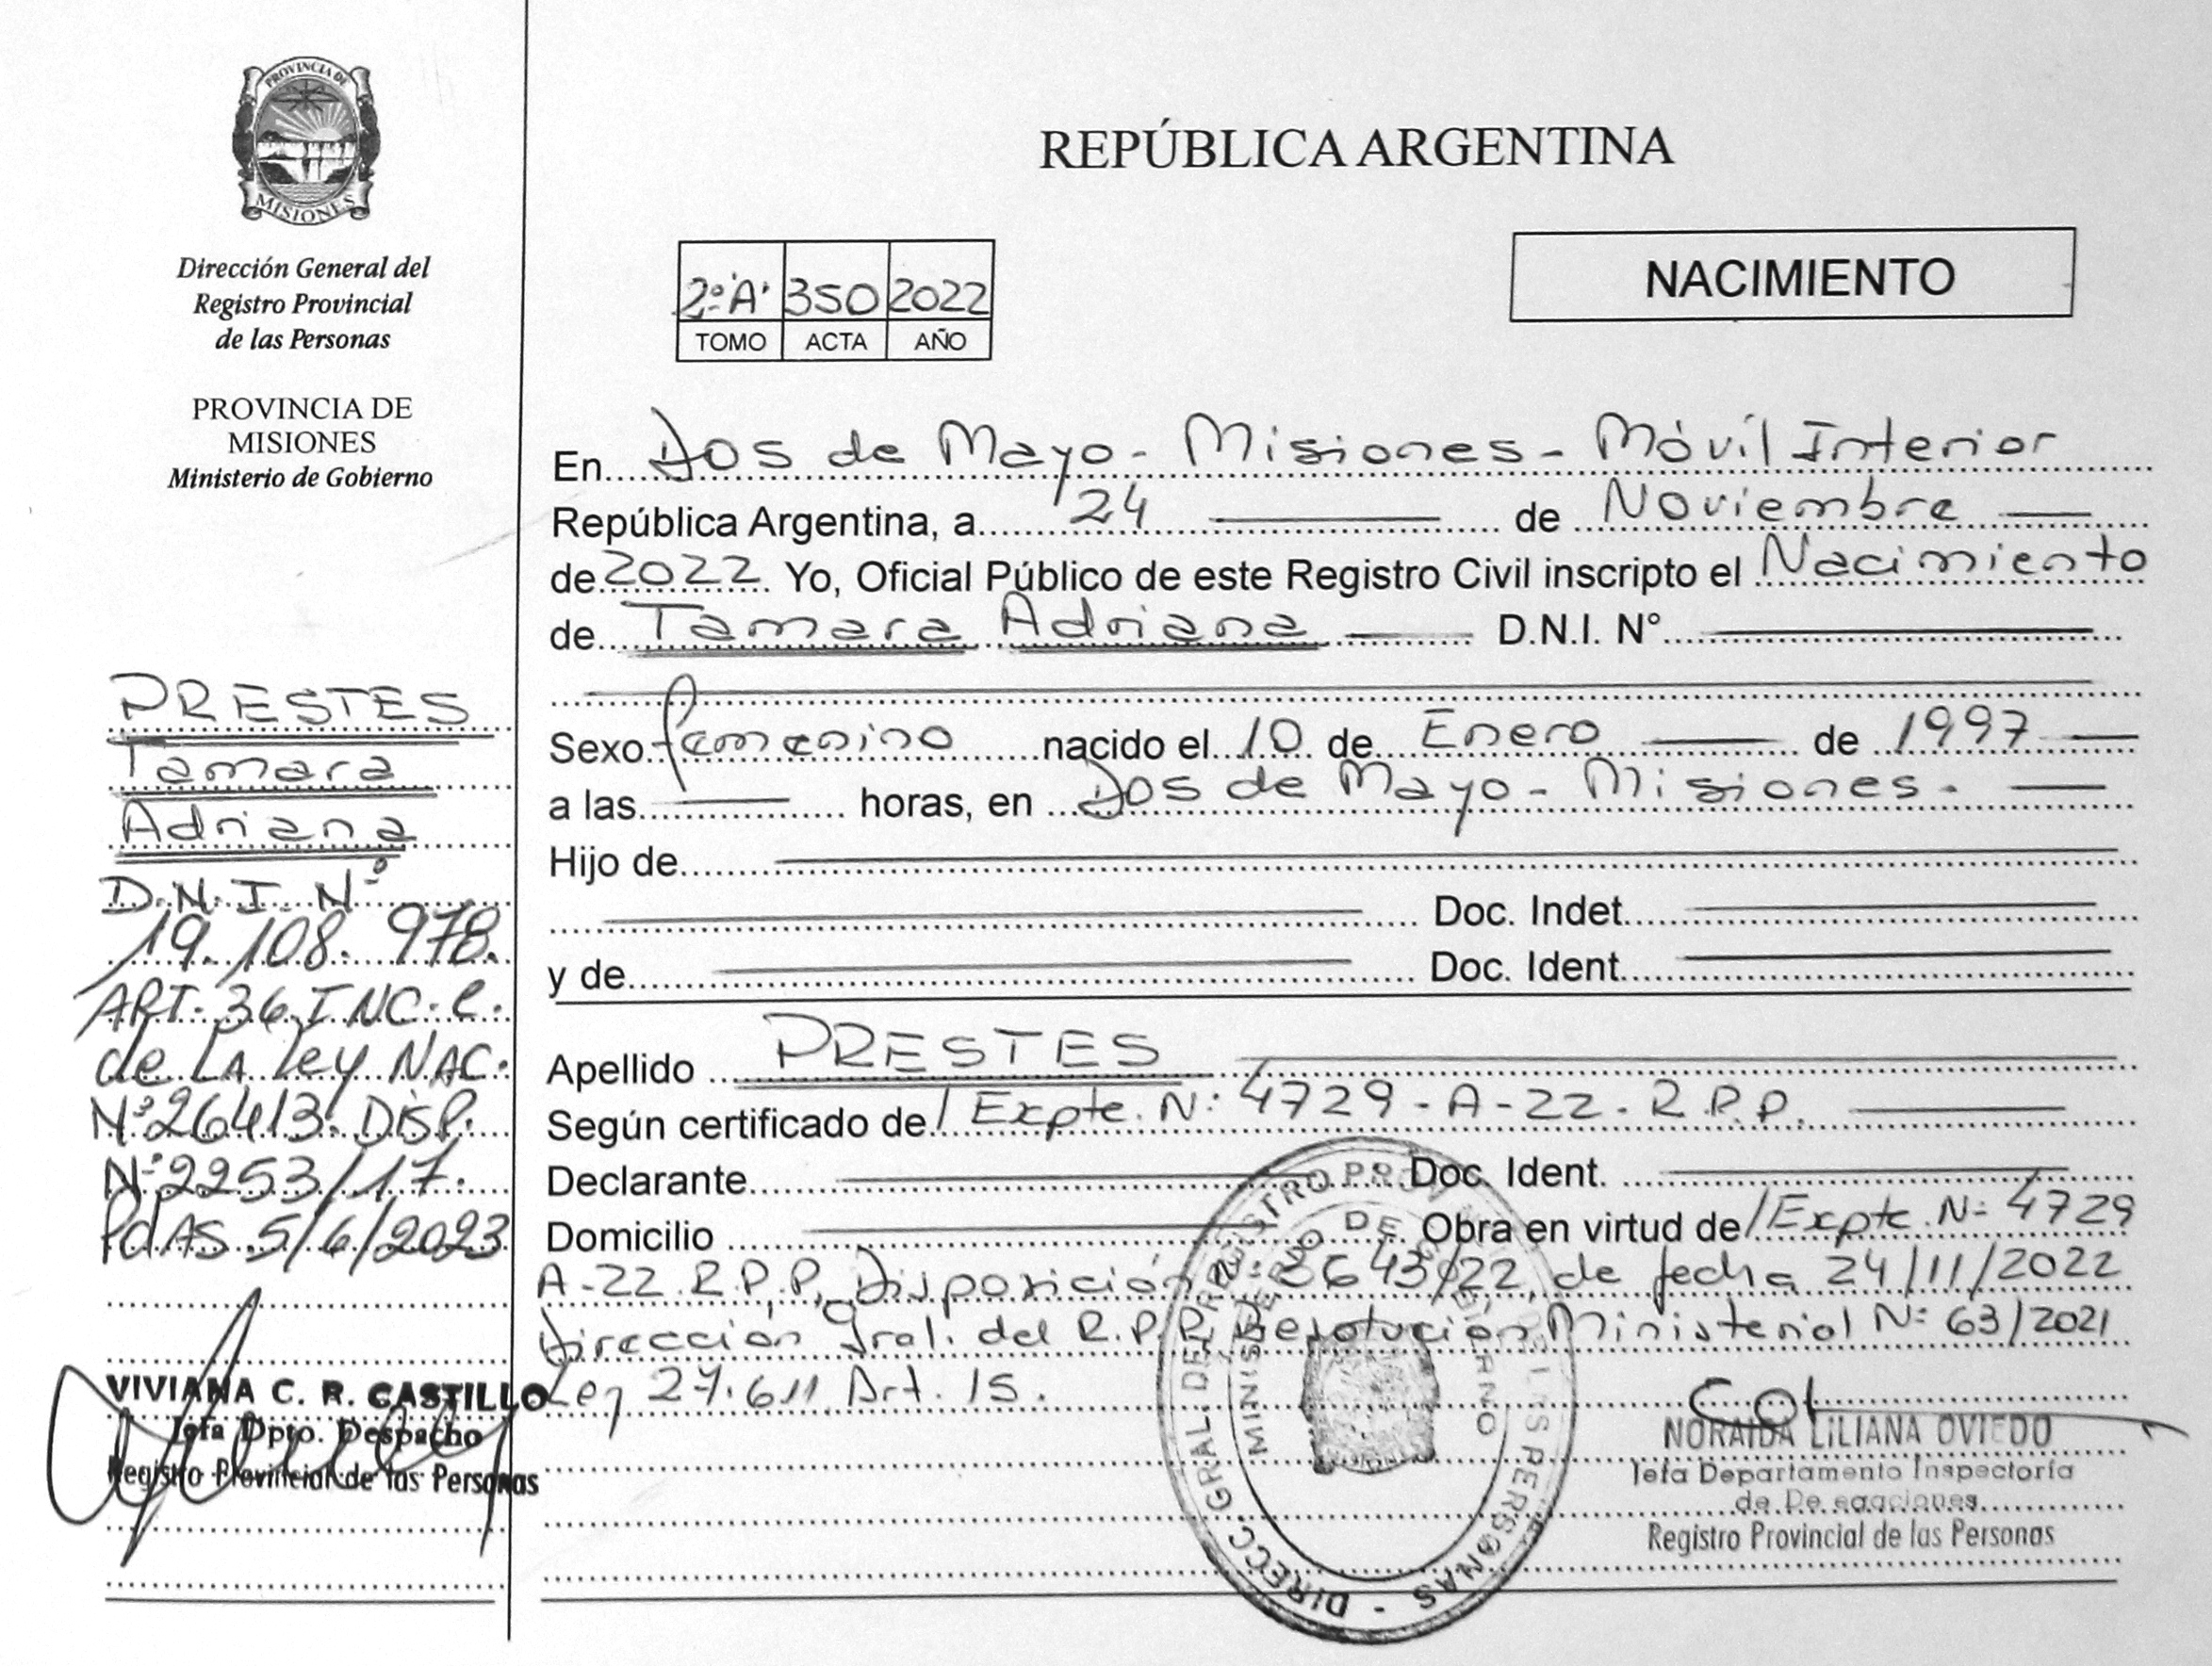 PROVINCIA DE
MISIONES
Dirección General del
Registro Provincial
de las Personas
PROVINCIA DE
MISIONES
Ministerio de Gobierno
PRESTES
Tamara
Adriana
D.N.I. Nº
19.108.978.
ART. 36 INC. C.
de LA Ley NAC.
Nº 26413. DISP.
Nº 2253/17.
PdAS. 5/6/2023
VIVIANA C. R. CASTILLO
Jefa Dpto. Despacho
Registro Provincial de las Personas
REPÚBLICA ARGENTINA
2º "A" 350 2022
TOMO ACTA AÑO
NACIMIENTO
En Dos de Mayo - Misiones - Móvil Interior
República Argentina, a 24 de Noviembre
de 2022 Yo, Oficial Público de este Registro Civil inscripto el Nacimiento
de Tamara Adriana D.N.I. N°
Sexo femenino nacido el 10 de Enero de 1997
a las horas, en Dos de Mayo - Misiones -
Hijo de
Doc. Indet.
y de Doc. Ident.
Apellido PRESTES
Según certificado de / Expte. Nº 4729 - A - 22 - R.P.P.
Declarante Doc. Ident.
Domicilio Obra en virtud de / Expte. Nº 4729
A-22 R.P.P. Disposición Nº 3643/22 de fecha 24/11/2022
Dirección Gral. del R.P.P. Resolución Ministerial Nº 63/2021
Ley 27.611 Art. 15.
NORAIDA LILIANA OVIEDO
Jefa Departamento Inspectoría
de Delegaciones
Registro Provincial de las Personas
DIRECC. GRAL. DEL REGISTRO PROV. DE LAS PERSONAS -
MINISTERIO DE GOBIERNO